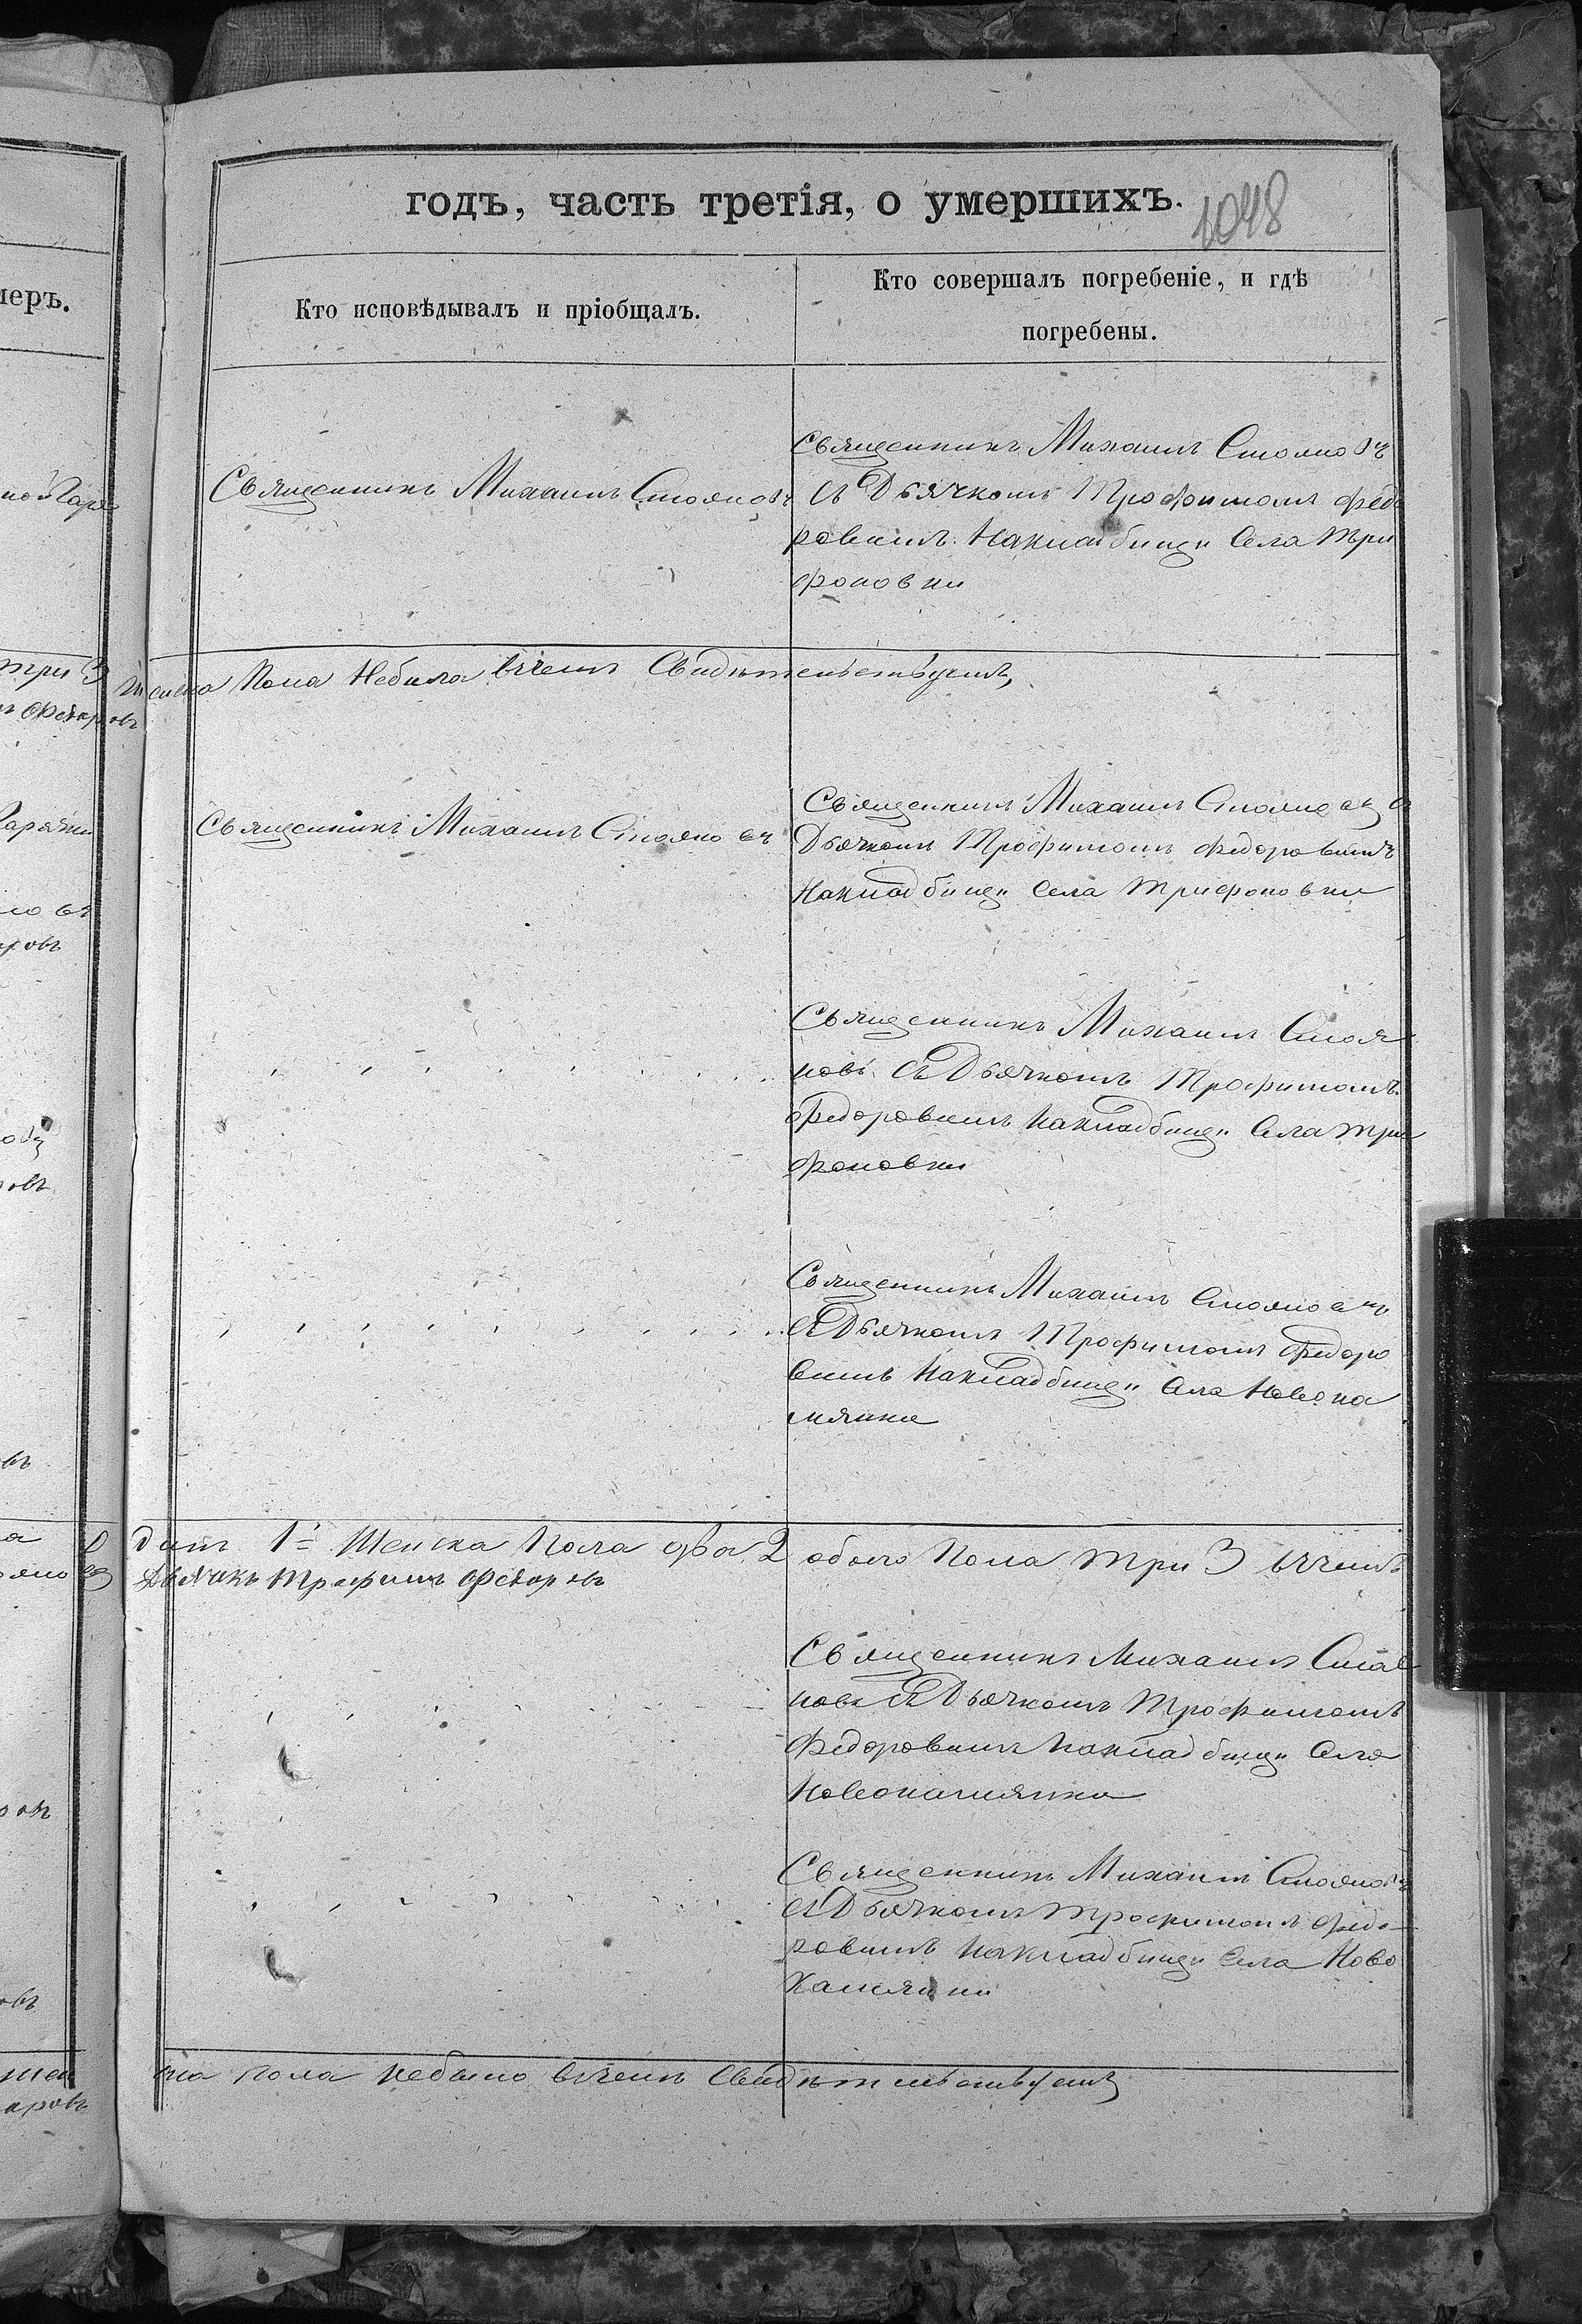 годъ, часть третія, о умершихъ.
1048
меръ.
Кто исповѣдывалъ и пріобщалъ.
Кто совершалъ погребеніе, и гдѣ
погребены.
Священникъ Михаилъ Стояновъ
Священникъ Михаилъ Стояновъ
съ Дьячкомъ Трофимомъ Федо
ровимъ Накладбищи Села Три
фоновки
три 3 женска Пола Небыло вчемъ Свидѣтельствуемъ,
Федоровъ
Священникъ Михаилъ Стояновъ
Священникъ Михаилъ Стояновъ съ
Дьячкомъ Трофимомъ Федоровимъ
Накладбищи Села Трифоновки
Священникъ Михаилъ Стоя
новъ съ Дьячкомъ Трофимомъ
Федоровимъ Накладбищи Села Три
фоновки
Священникъ Михаилъ Стояновъ
съ Дьячкомъ Трофимомъ Федоро
вимъ Накладбищи Села Новока
мянки
динъ 1 Женска Пола два 2 обого Пола три 3 вчемъ
Дьячкъ Трофимъ Федоровъ
Священникъ Михаилъ Стоя
новъ съ Дьячкомъ Трофимомъ
Федоровимъ Накладбищи Села
Новокамянки
Священникъ Михаилъ Стояновъ
съ Дьячкомъ Трофимомъ Федо
ровимъ Накладбищи Села Ново
Камянки
жен ска пола небыло вчемъ Свидѣтельствуемъ